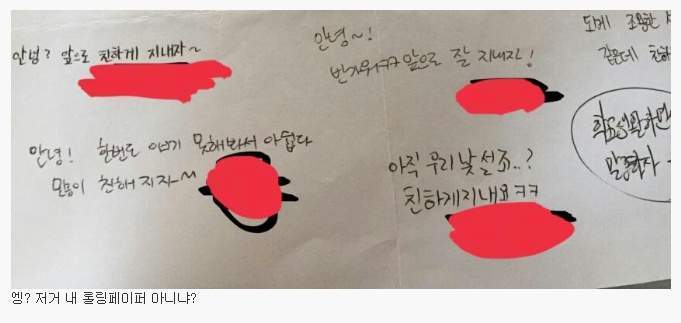 안녕? 앞으로 친하게 지내자~
안녕~!
반가워ㅋㅋ 앞으로 잘 지내자!
안녕! 한번도 얘기 못해봐서 아쉽다
친해 지자~~
아직 우리 낯설죠..?
친하게지내요ㅋㅋ
되게 조용한
같은데 친하
학교생활하면
엥? 저거 내 롤링페이퍼 아니냐?